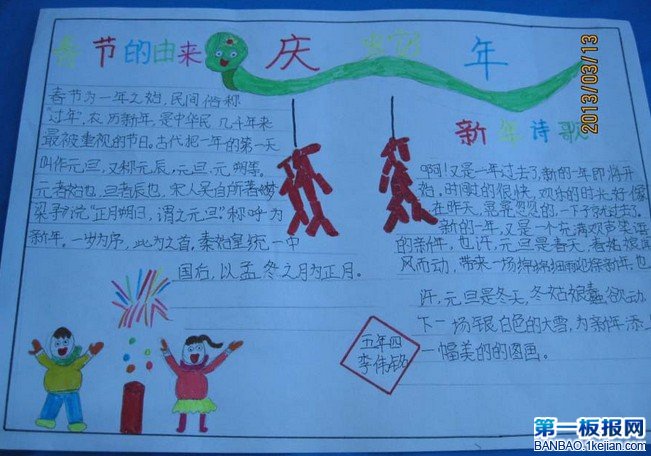 春节的由来
庆
年
春节为一年之始,民间俗称
"过年",农历新年,是中华民几千年来
最被重视的节日。古代把一年的第一天
叫作元旦,又称元辰,元旦,元朔等。
元者始也,旦者辰也,宋人吴自所著梦
梁"说"正月朔日,谓之元旦"称呼为
新年。一岁为序,此为之首。秦始皇统一中
国后,以孟冬之月为正月。
新年诗歌
啊!又是一年过去了,新的一年即将开
始,时间的很快,欢乐的时光好像
在昨天,晃晃忽忽的,一下子就过去了。
新的一年,又是一个充满欢声笑语
的新年,也许,元旦是春天,春姑娘闻
风而动,带来一场绵绵细雨迎新年,也
许,元旦是冬天,冬姑娘蠢欲动
下一场银白色的大雪,为新年添上
一幅美的的图画。
五年四
李伟铭
2013/03/13
第一板报网
BANBAO.1kejian.com